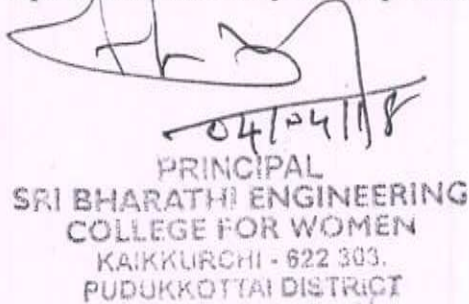 04/04/18
PRINCIPAL
SRI BHARATHI ENGINEERING
COLLEGE FOR WOMEN
KAIKKURCHI - 622 303.
PUDUKKOTTAI DISTRICT